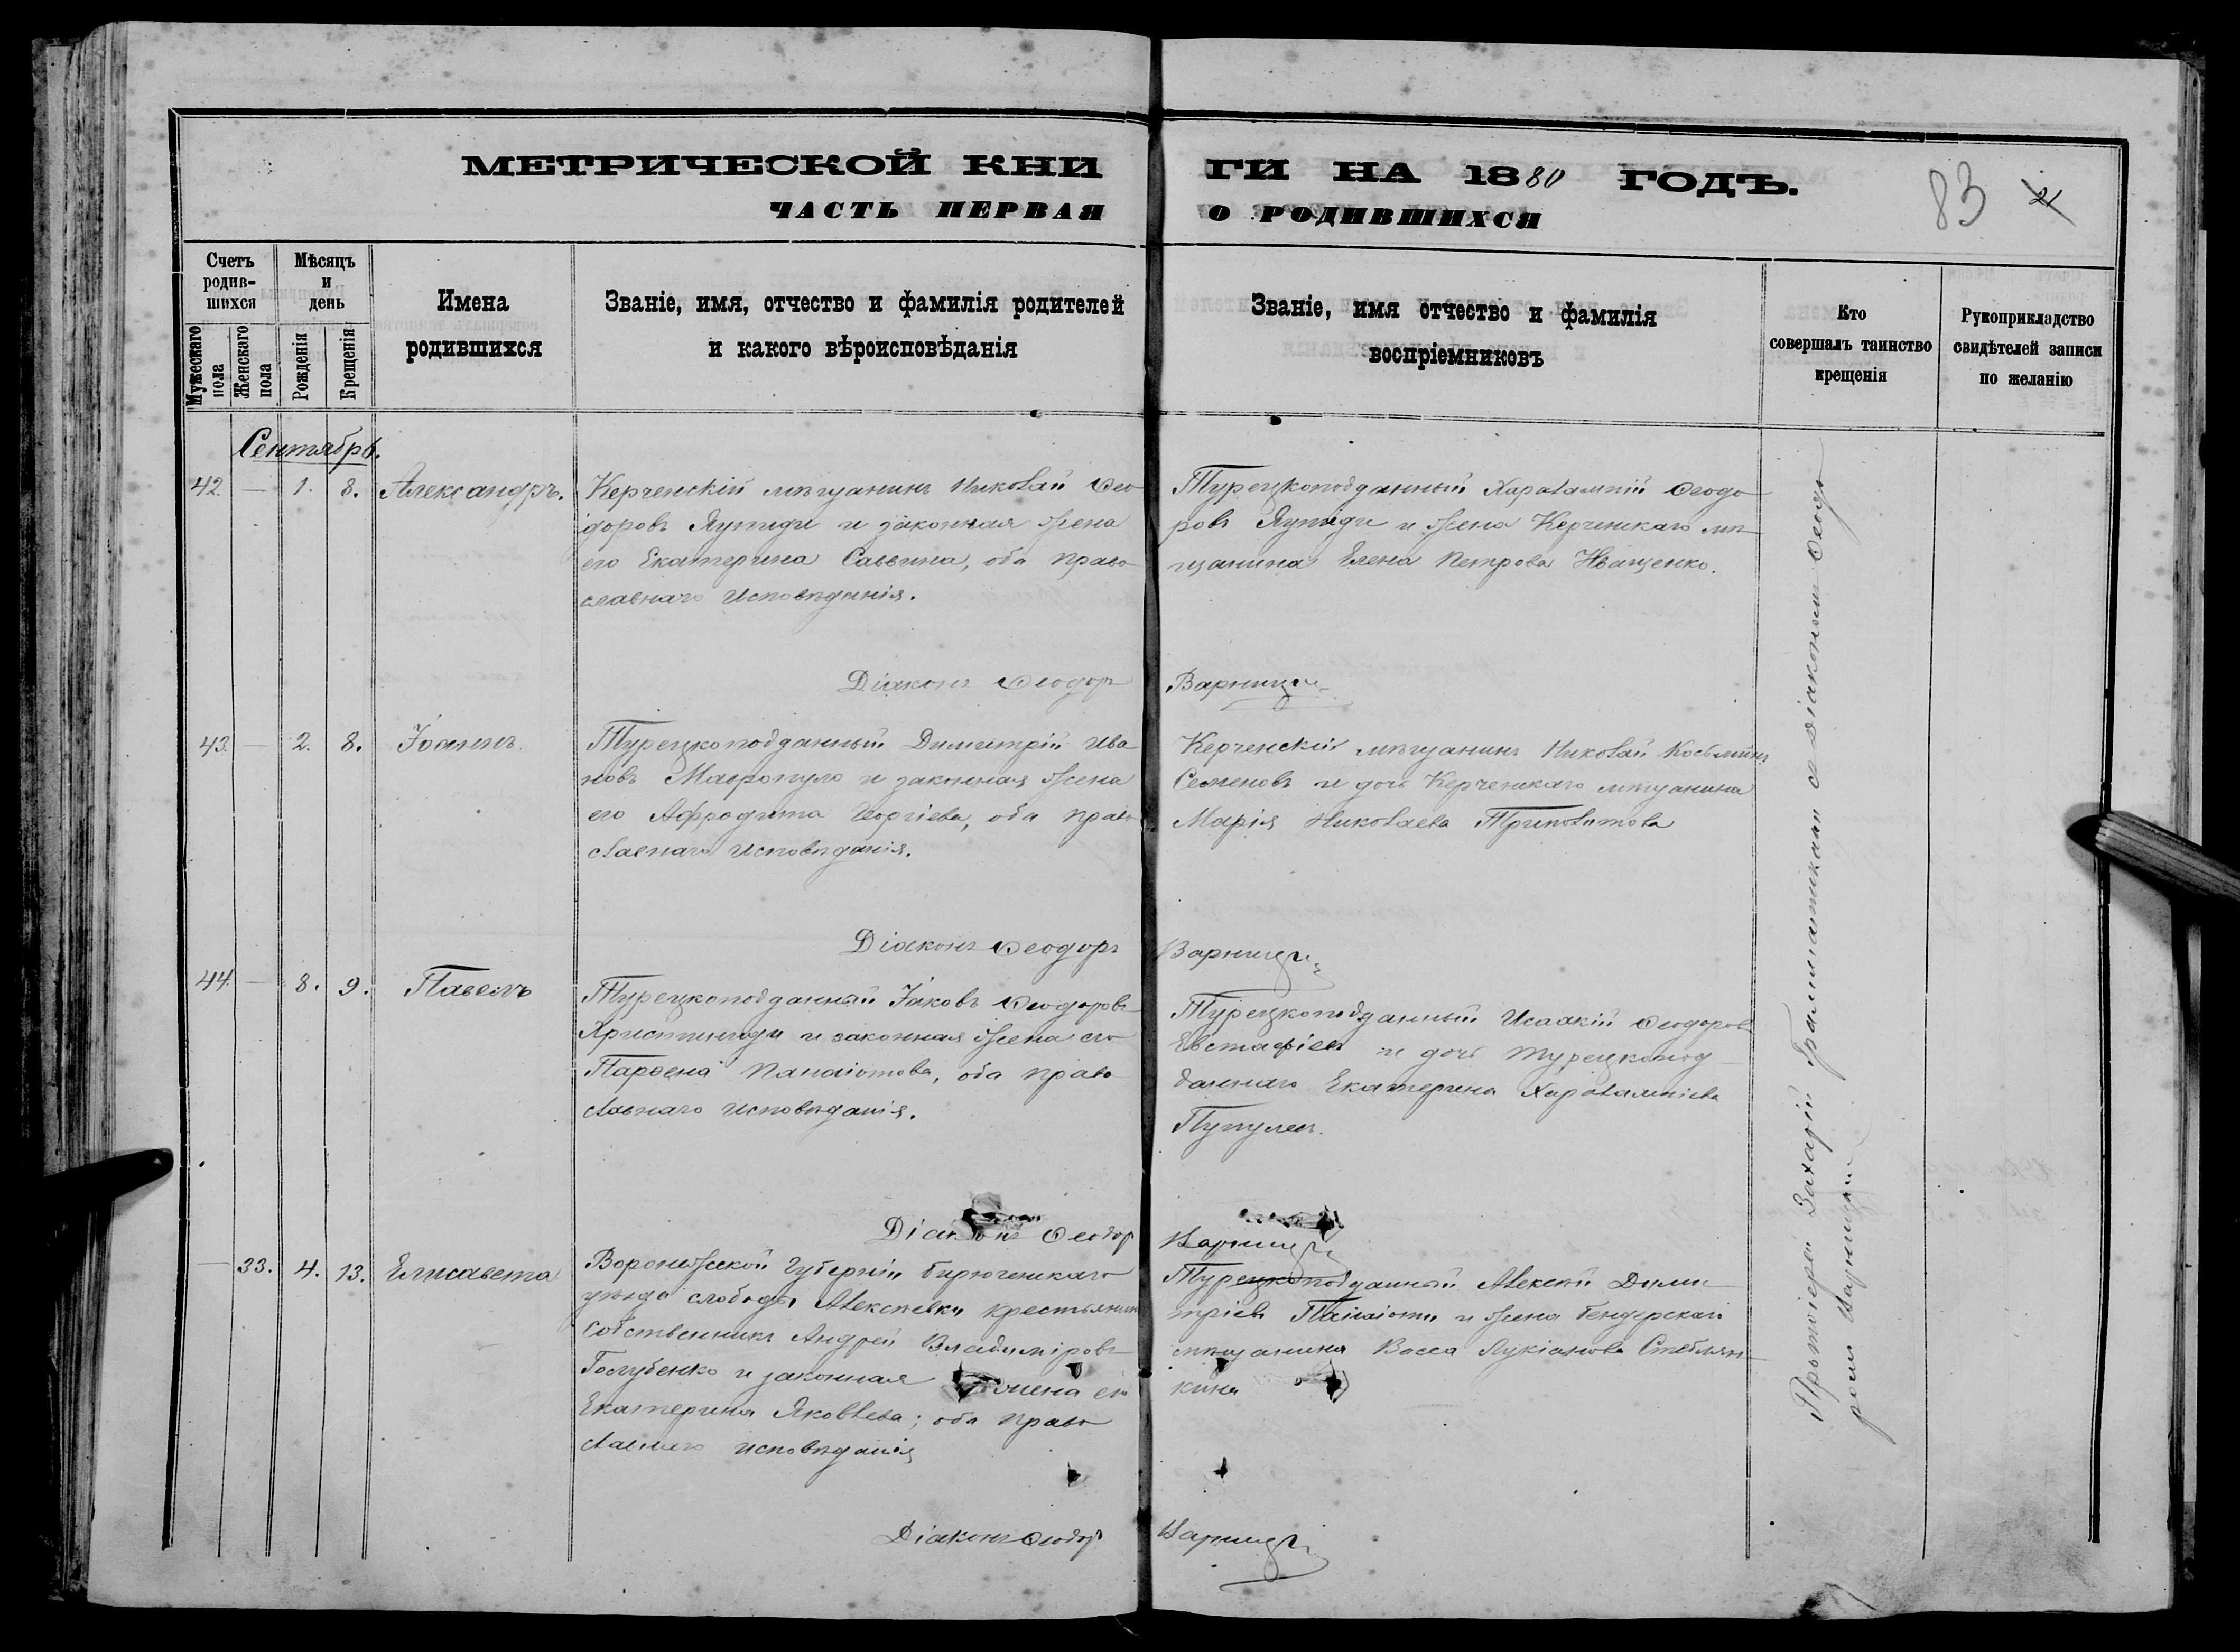 МЕТРИЧЕСКОЙ КНИ
ГИ НА 1880 ГОДЪ.
83 21
ЧАСТЬ ПЕРВАЯ
О РОДИВШИХСЯ
Счетъ родив-
шихся
Мужескаго пола
Женскаго пола
Мѣсяцъ
и
день
Рожденія
Крещенія
Имена
родившихся
Званіе, имя, отчество и фамилія родителей
и какого вѣроисповѣданія
Званіе, имя отчество и фамилія
воспріемниковъ
Кто
совершалъ таинство
крещенія
Рукоприкладство
свидѣтелей записи
по желанію
Сентябрь.
42. — 1. 8. Александръ.
Керченскій мѣщанинъ Николай Ѳео-
доровъ Яутиди и законная жена
его Екатерина Саввина, оба право-
славнаго исповѣданія.
Турецкоподданный Харалампій Ѳеодо-
ровъ Яутиди и жена Керченскаго мѣ-
щанина Елена Петрова Иващенко.
Діаконъ Ѳеодоръ Варницки
43. — 2. 8. Іоаннъ.
Турецкоподданный Димитрій Ива-
новъ Мавропуло и законная жена
его Афродита Георгіева, оба право-
славнаго исповѣданія.
Керченскій мѣщанинъ Николай Косьминъ
Семеновъ и дочь Керченскаго мѣщанина
Марія Николаева
Діаконъ Ѳеодоръ Варницки
44. — 8. 9. Павелъ
Турецкоподданный Іаковъ Ѳеодоровъ
и законная жена его
Парѳена Панаіотова, оба право-
славнаго исповѣданія.
Турецкоподданный Исаакій Ѳеодоровъ
Евстафіевъ и дочь турецкопод-
даннаго Екатерина Харалампіева
Діаконъ Ѳеодоръ Варницки
— 33. 4. 13. Елисавета
Воронежской Губерніи Бирюченскаго
уѣзда слободы Алексѣевки крестьянинъ
собственникъ Андрей Владиміровъ
Голубенко и законная жена его
Екатерина Яковлева; оба право-
славнаго исповѣданія
Турецкоподданный Алексѣй Дими-
тріевъ Панаіоти и жена Бендерскаго
мѣщанина Васса Лукіанова Стеблян-
кина
Діаконъ Ѳеодоръ Варницки
Протоіерей Захарій Грамматикати съ діакономъ Ѳеодо-
ромъ Варницки